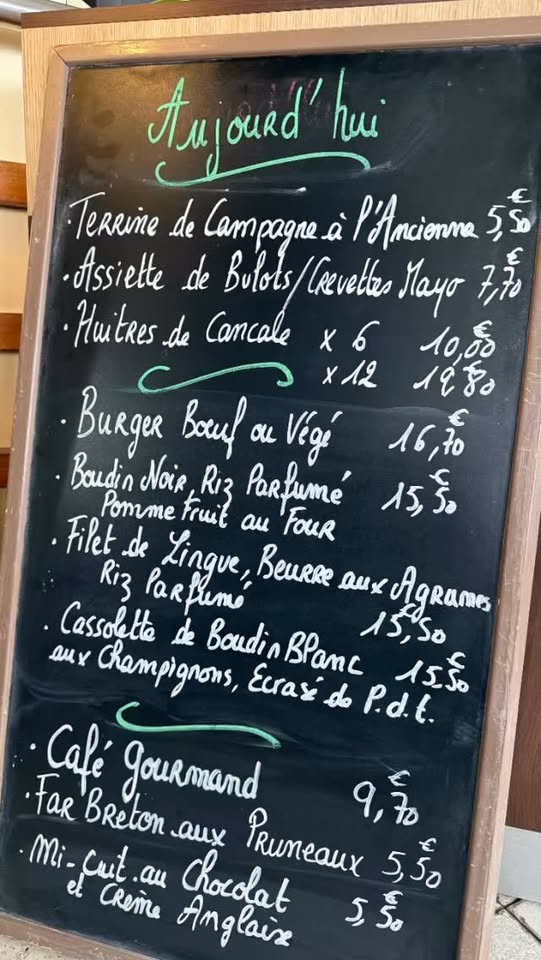 Aujourd'hui
· Terrine de Campagne à l'Ancienne 5,50 €
· Assiette de Bulots/Crevettes Mayo 7,70 €
· Huitres de Cancale x 6 10,00 €
x 12 19,80 €
· Burger Bœuf ou Végé 16,70 €
· Boudin Noir, Riz Parfumé 15,50 €
Pomme Fruit au Four
· Filet de Lingue, Beurre aux Agrumes
Riz Parfumé 15,50 €
· Cassolette de Boudin Blanc 15,50 €
aux Champignons, Ecrasé de P.d.t.
· Café Gourmand 9,70 €
· Far Breton aux Pruneaux 5,50 €
· Mi-Cuit au Chocolat 5,50 €
et Crème Anglaise